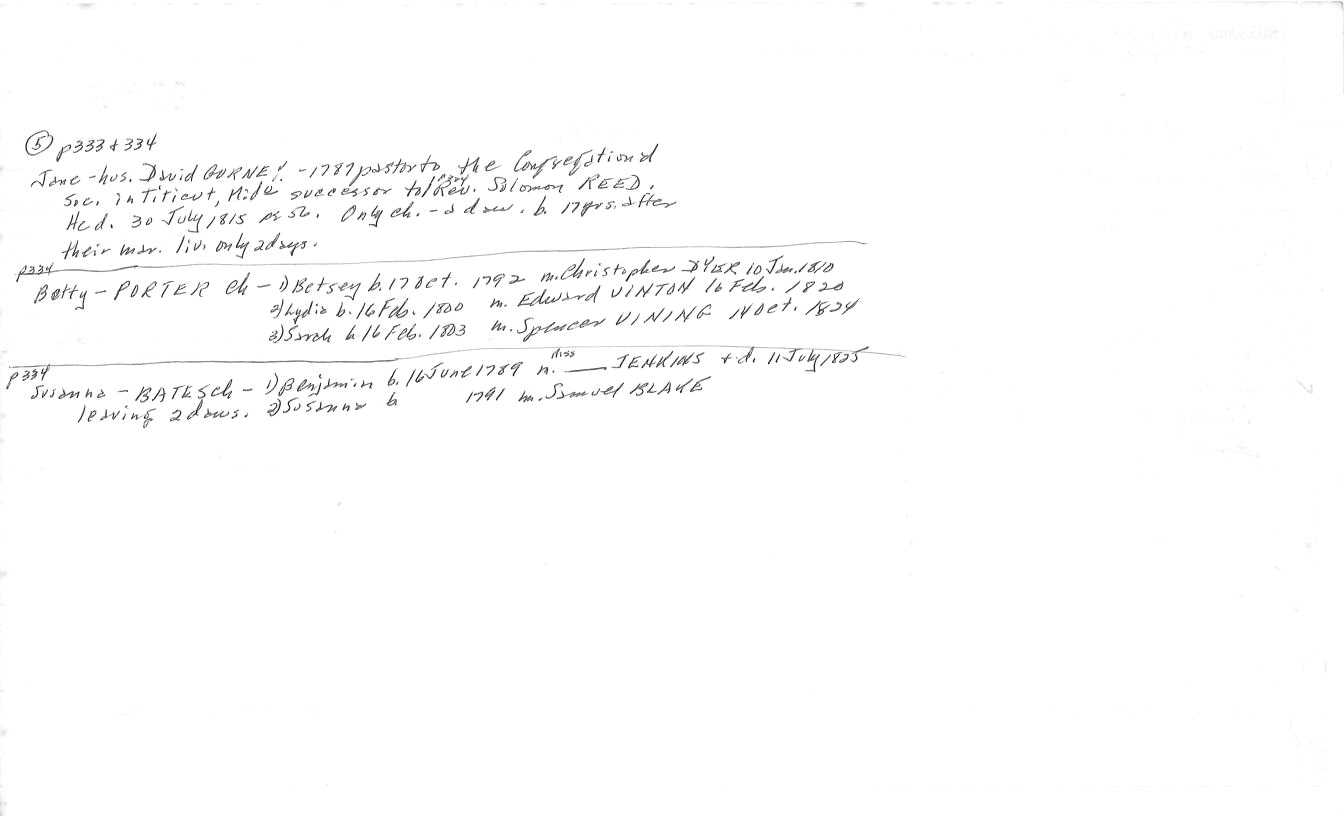 ⑤ p333 & 334
Jane - hus. David GURNEY. - 1787 pastor to the Congregational
Soc. in Titicut, Mide successor to p334 Rev. Solomon REED.
He d. 30 July 1815 ae 56. Only ch. - a dau. b. 17 yrs. after
their mar. liv. only 2 days.
p334
Betty - PORTER Ch - 1) Betsey b. 17 Oct. 1792 m. Christopher DYER 10 Jan. 1810
2) Lydia b. 16 Feb. 1800 m. Edward VINTON 16 Feb. 1820
3) Sarah b 16 Feb. 1803 m. Spencer VINING 14 Oct. 1824
p334
Susanna - BATES Ch - 1) Benjamin b. 16 June 1789 m. Miss ___ JENKINS & d. 11 July 1825
leaving 2 daus. 2) Susanna b 1791 m. Samuel BLAKE